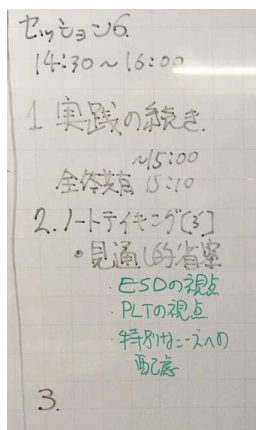 セッション6.
14:30～16:00
1 実践の続き.
～15:00
全体共有 15:10
2.ノートテイキング[3']
・見通し的省察
・ESDの視点
・PLTの視点
・特別なニーズへの
配慮
3.